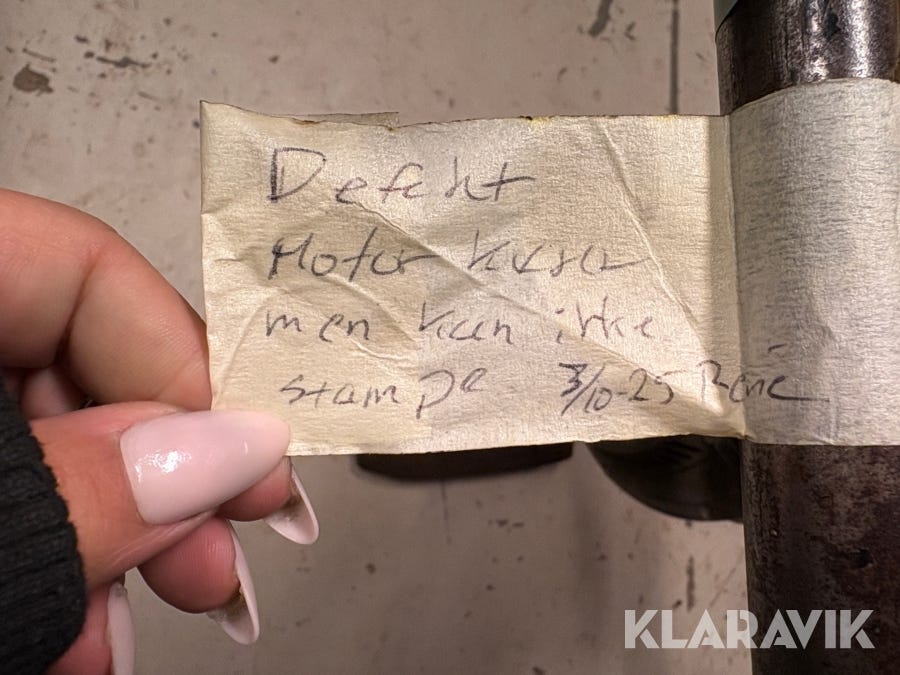 Defekt
Motor kører
men kan ikke
stampe 3/10-25 René
KLARAVIK